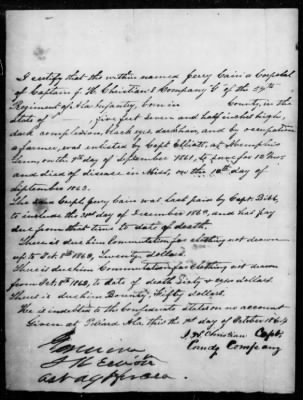 I certify that the within named Jerry Cain a Corporal
of Captain J. H. Christian's Company "C" of the 59th
Regiment of Ala Infantry, born in County, in the
State of five feet Seven and half inches high,
dark complexion, black eyes, dark hair, and by occupation
a farmer, was enlisted by Capt. Elliott, at Memphis
Tenn, on the 7th day of September 1861, to serve for 12 mos
and died of disease in Miss, on the 10th day of
September 1863.
The said Corpl. Jerry Cain was last paid by Capt. Bibb,
to include the 31st day of December 1862, and has pay
due from that time to date of death.
There is due him Commutation for clothing not drawn
up to Oct. 8th 1862, Twenty dollars.
There is due him Commutation for Clothing not drawn
from Oct. 8th 1862, to date of death Sixty & dollars.
There is due him Bounty, Fifty dollars.
He is indebted to the Confederate States on account
Given at Ala, this the day of October 1864
J. H. Christian Capt.
Comdg Company